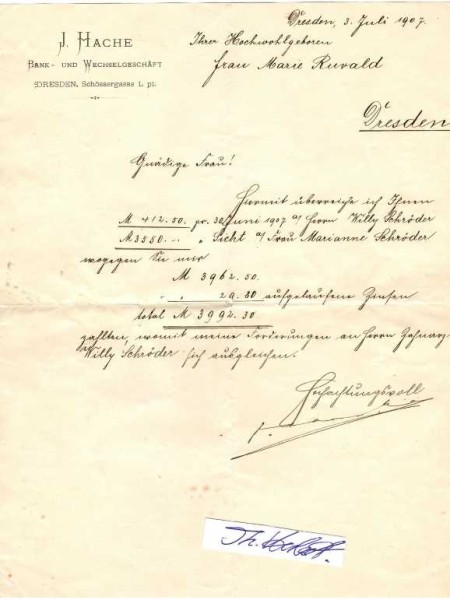 J. Hache
Bank- und Wechselgeschäft
Dresden, Schössergasse 1. pt.
Dresden, 3. Juli 1907.
Ihrer Hochwohlgeboren
Frau Marie Ruvald
Dresden
Gnädige Frau!
Hiermit überreiche ich Ihnen
M 412.50. pr. 30/Juni 1907 a/ Herrn Willy Schröder
M 3550.-. " Sicht a/ Frau Marianne Schröder
wogegen Sie mir
M 3962.50.
" 29.80 aufgelaufene Zinsen
total M 3992.30
zahlten, womit meine Forderungen an Herrn Zahnarzt
Willy Schröder sich ausgleichen.
Hochachtungsvoll